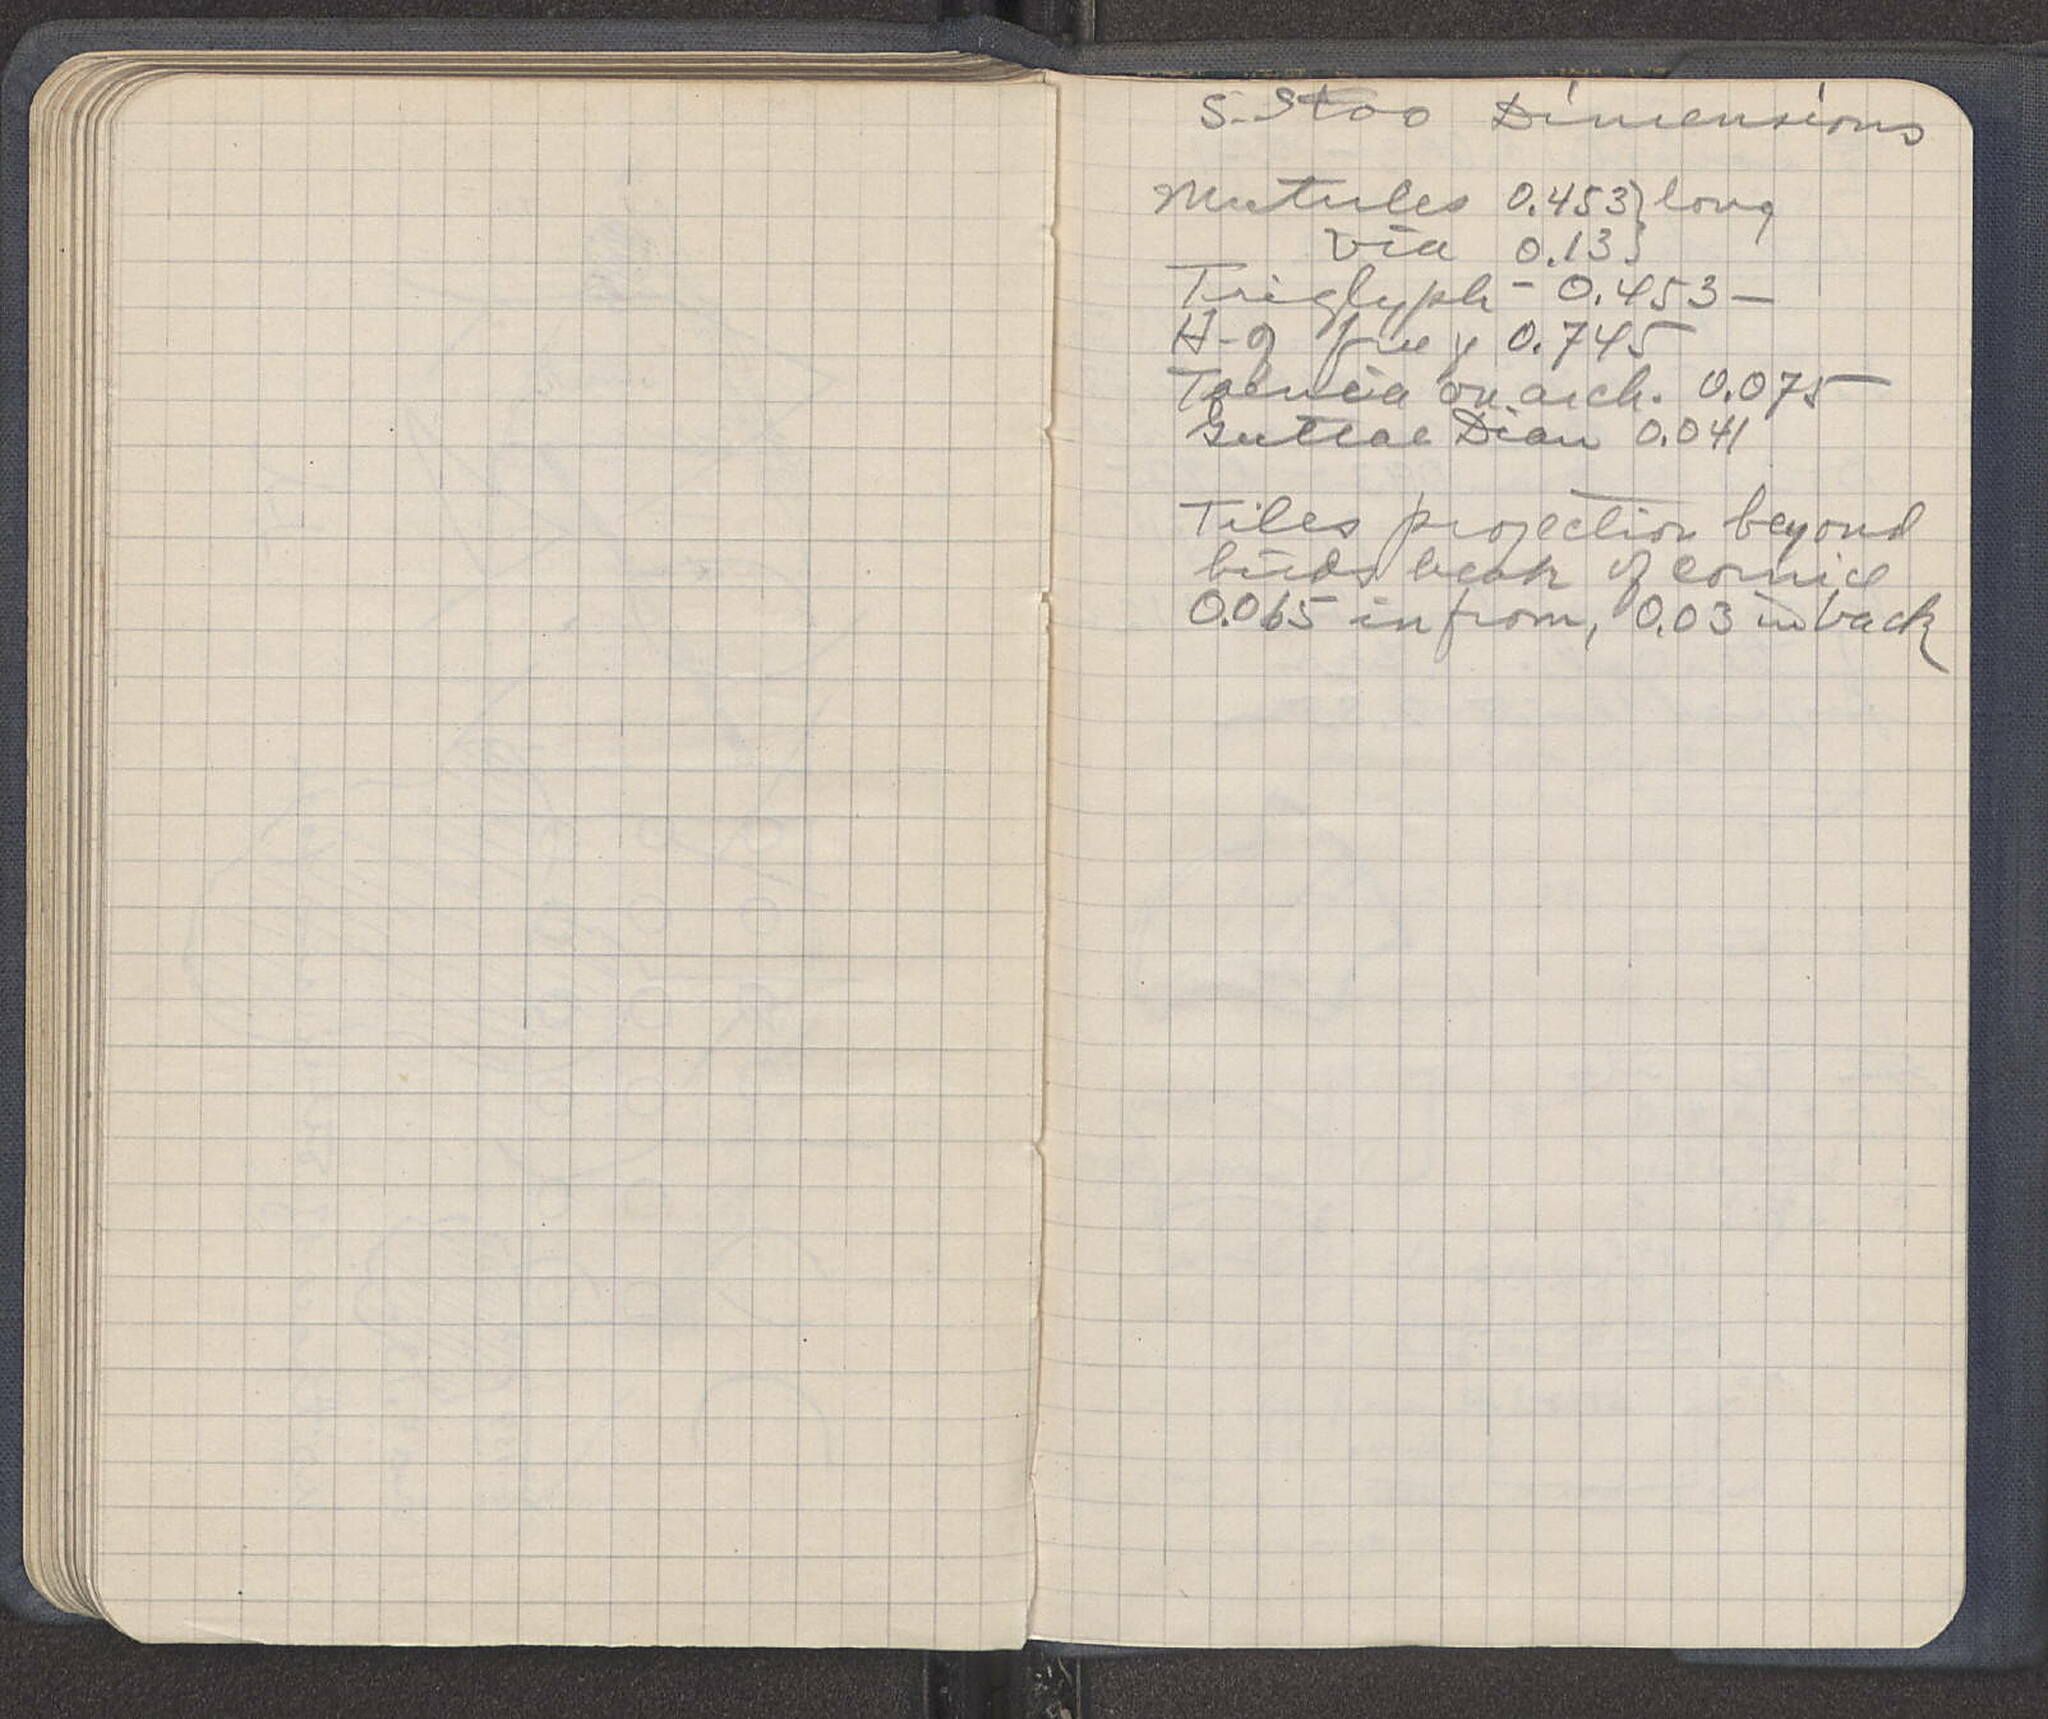 S. Stoa Dimensions
Mutules 0.453} long
via 0.13}
Triglyph - 0.453 -
H- of frieze 0.745
Taenia on arch. 0.075
Guttae Diam 0.041
Tiles projection beyond
birds beak of cornice
0.065 in from, 0.03 in back